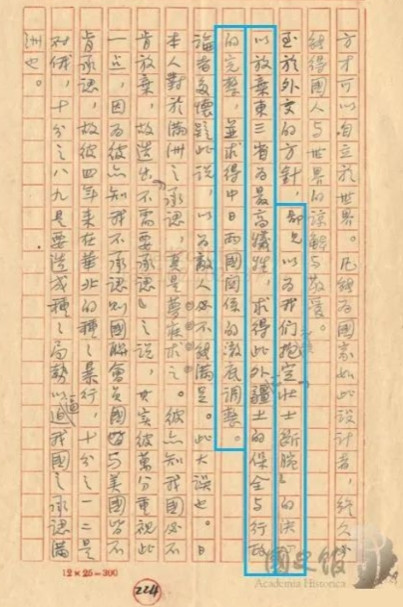 方才可以自立於世界。凡能為國家如此設計者,終久必
能得國人与世界的諒解与敬愛。
至於外交的方針,鄙見以為我們抱定「壯士斷腕」的決心
以放棄東三省為最高犧牲,求得此外疆土的保全与行政
的完整,並求得中日兩國關係的澈底調整。
論者多懷疑此說,以為敵人必不能滿足。此大誤也。日
本人對於滿洲之承認,真是夢寐求之。彼亦知我國必不
肯放棄,故造出「不需要承認」之說,其實彼萬分重視此
一点,因為彼亦知我不承認則國聯會員國与美國皆不
肯承認。故彼四年來在華北的種〻暴行,十分之一二是
對俄,十分之八九是要造成種〻局勢以逼我國之承認滿
洲也。
12×25=300
224
國史館
Academia Historica